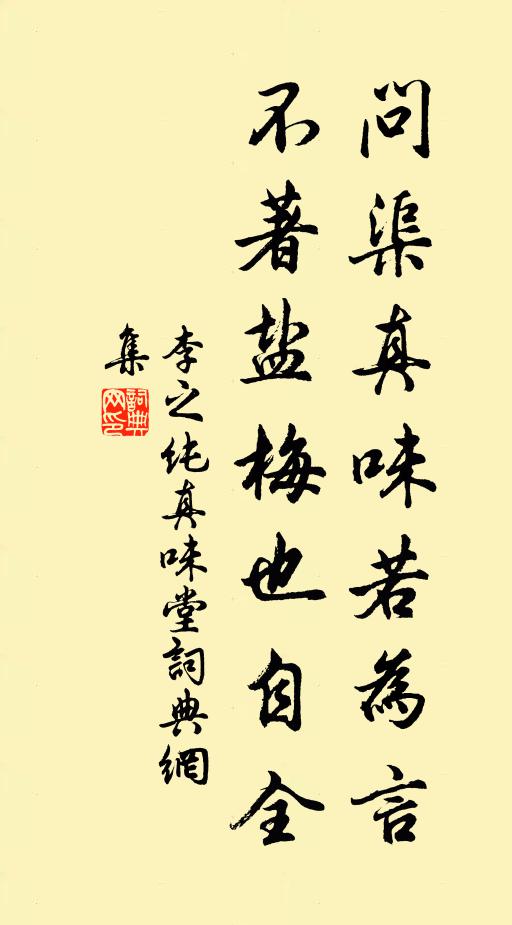 問渠真味若為言
不著盐梅也自全
李之純真味堂詞典網
集
詞典
网印